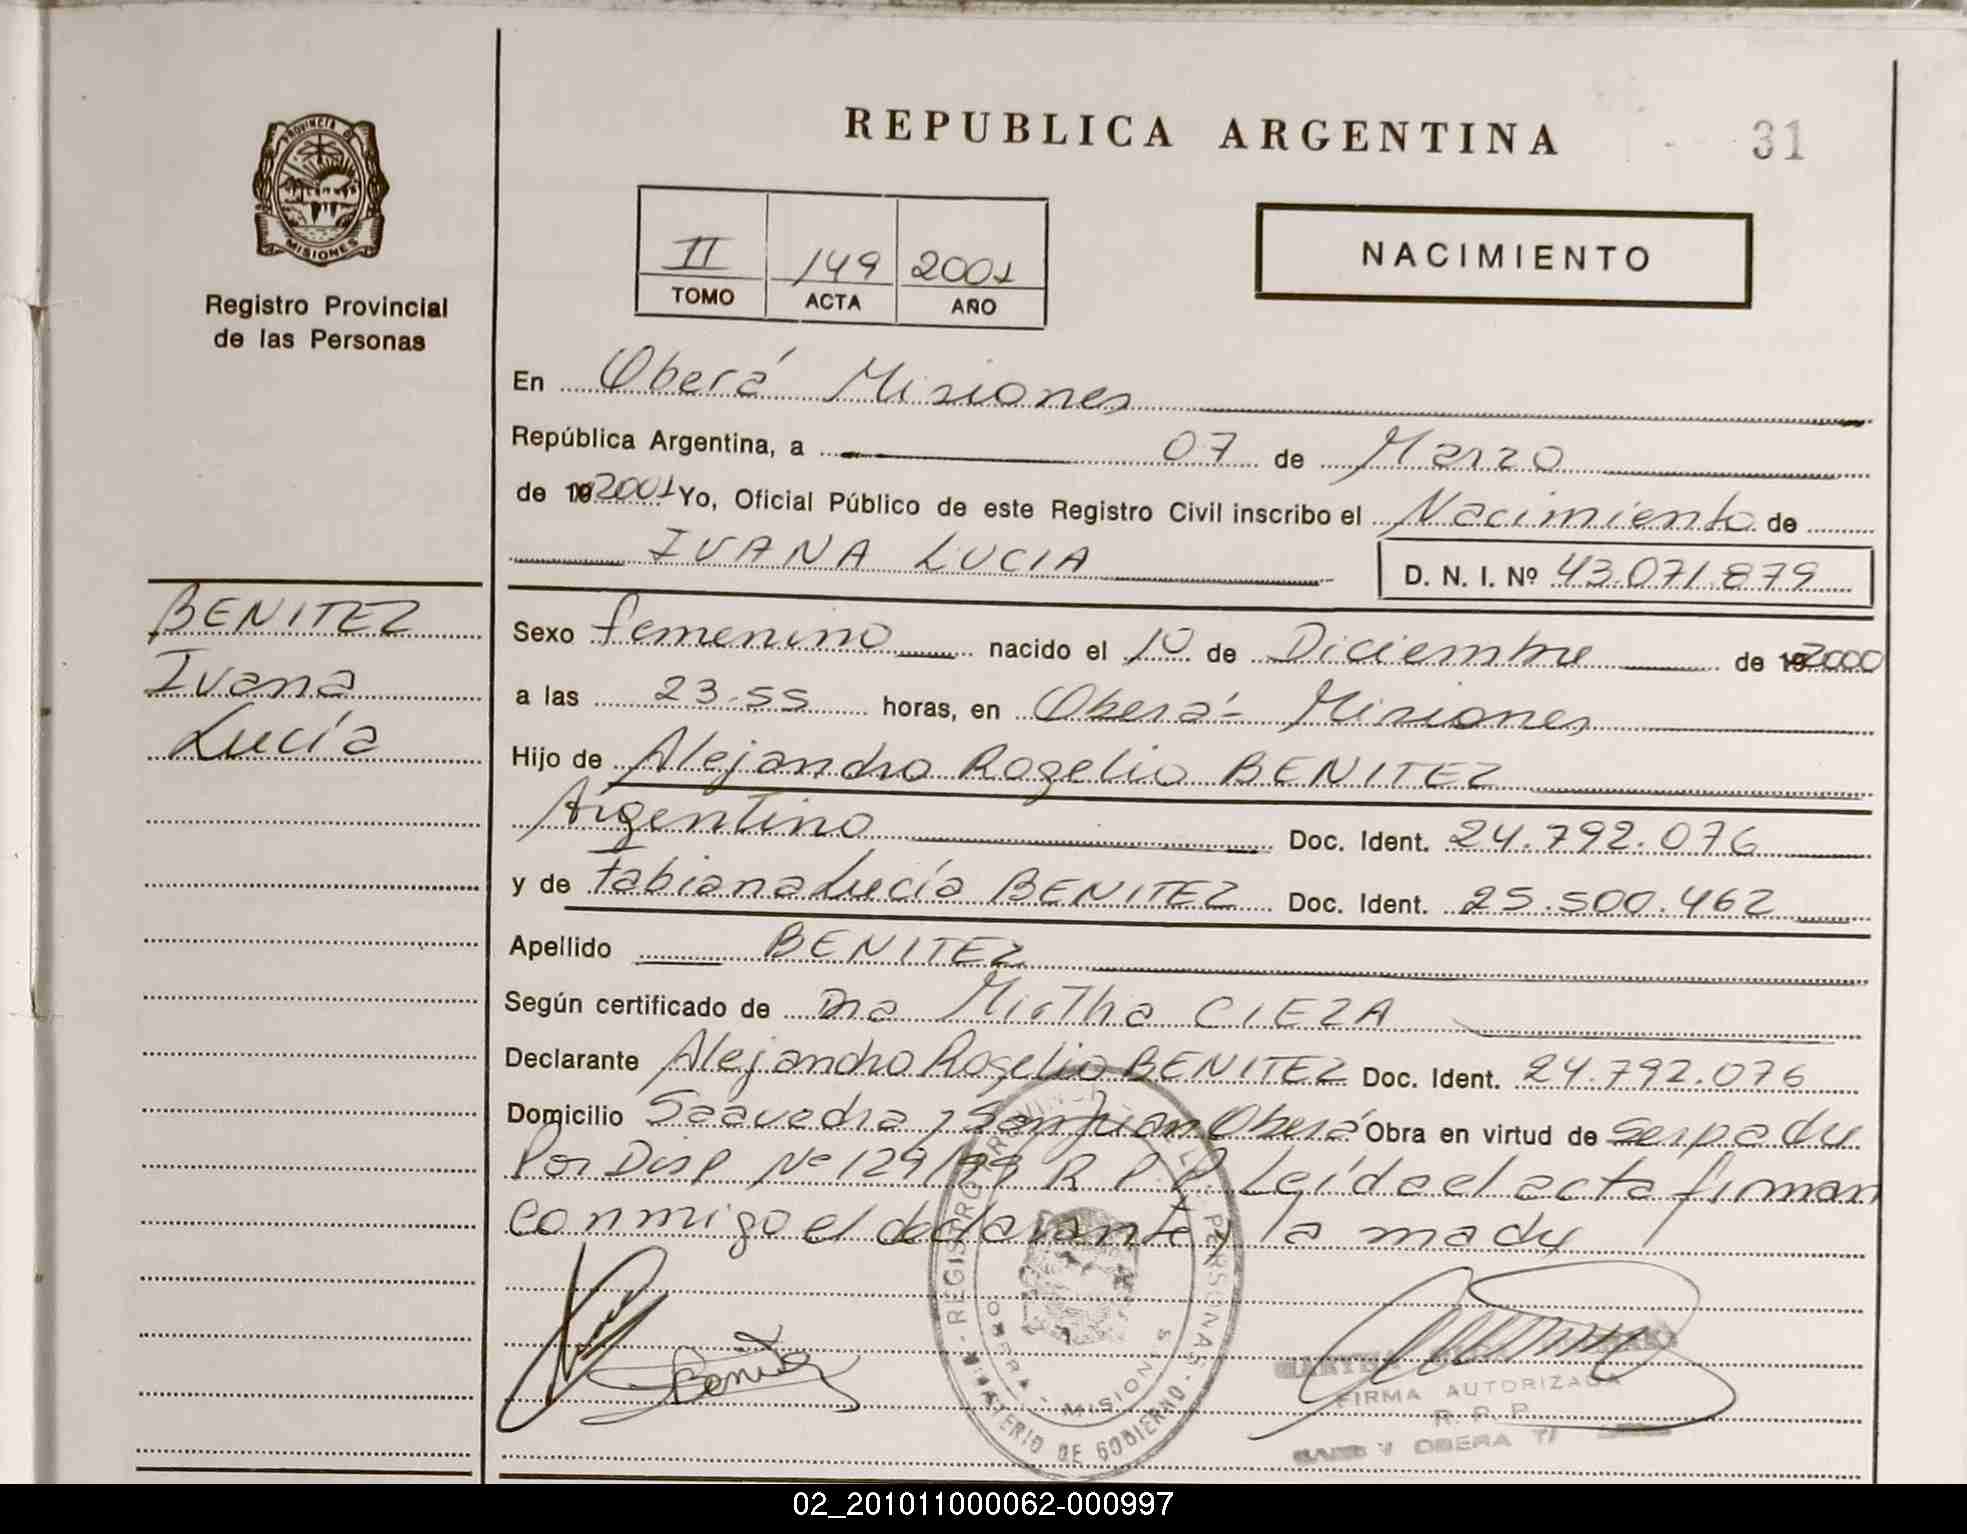 REPUBLICA ARGENTINA
31
PROVINCIA DE
MISIONES
Registro Provincial
de las Personas
II 149 2001
TOMO ACTA AÑO
NACIMIENTO
En Oberá Misiones
República Argentina, a 07 de Marzo
de 19 2001 Yo, Oficial Público de este Registro Civil inscribo el Nacimiento de
IVANA LUCIA D. N. I. Nº 43.071.879
BENITEZ
Ivana
Lucía
Sexo femenino nacido el 10 de Diciembre de 19 2000
a las 23.55 horas, en Oberá - Misiones
Hijo de Alejandro Rogelio BENITEZ
Argentino Doc. Ident. 24.792.076
y de Fabiana Lucía BENITEZ Doc. Ident. 25.500.462
Apellido BENITEZ
Según certificado de Dra Mirtha CIEZA
Declarante Alejandro Rogelio BENITEZ Doc. Ident. 24.792.076
Domicilio Saavedra y San Juan Oberá Obra en virtud de ser padre
Por Disp Nº 129/99 R. P. P. Leída el acta firman
conmigo el declarante y la madre
Benitez
REGISTRO PROVINCIAL DE LAS PERSONAS
OBERA - MISIONES
MINISTERIO DE GOBIERNO
FIRMA AUTORIZADA
R. P. P.
OBERA
02_201011000062-000997